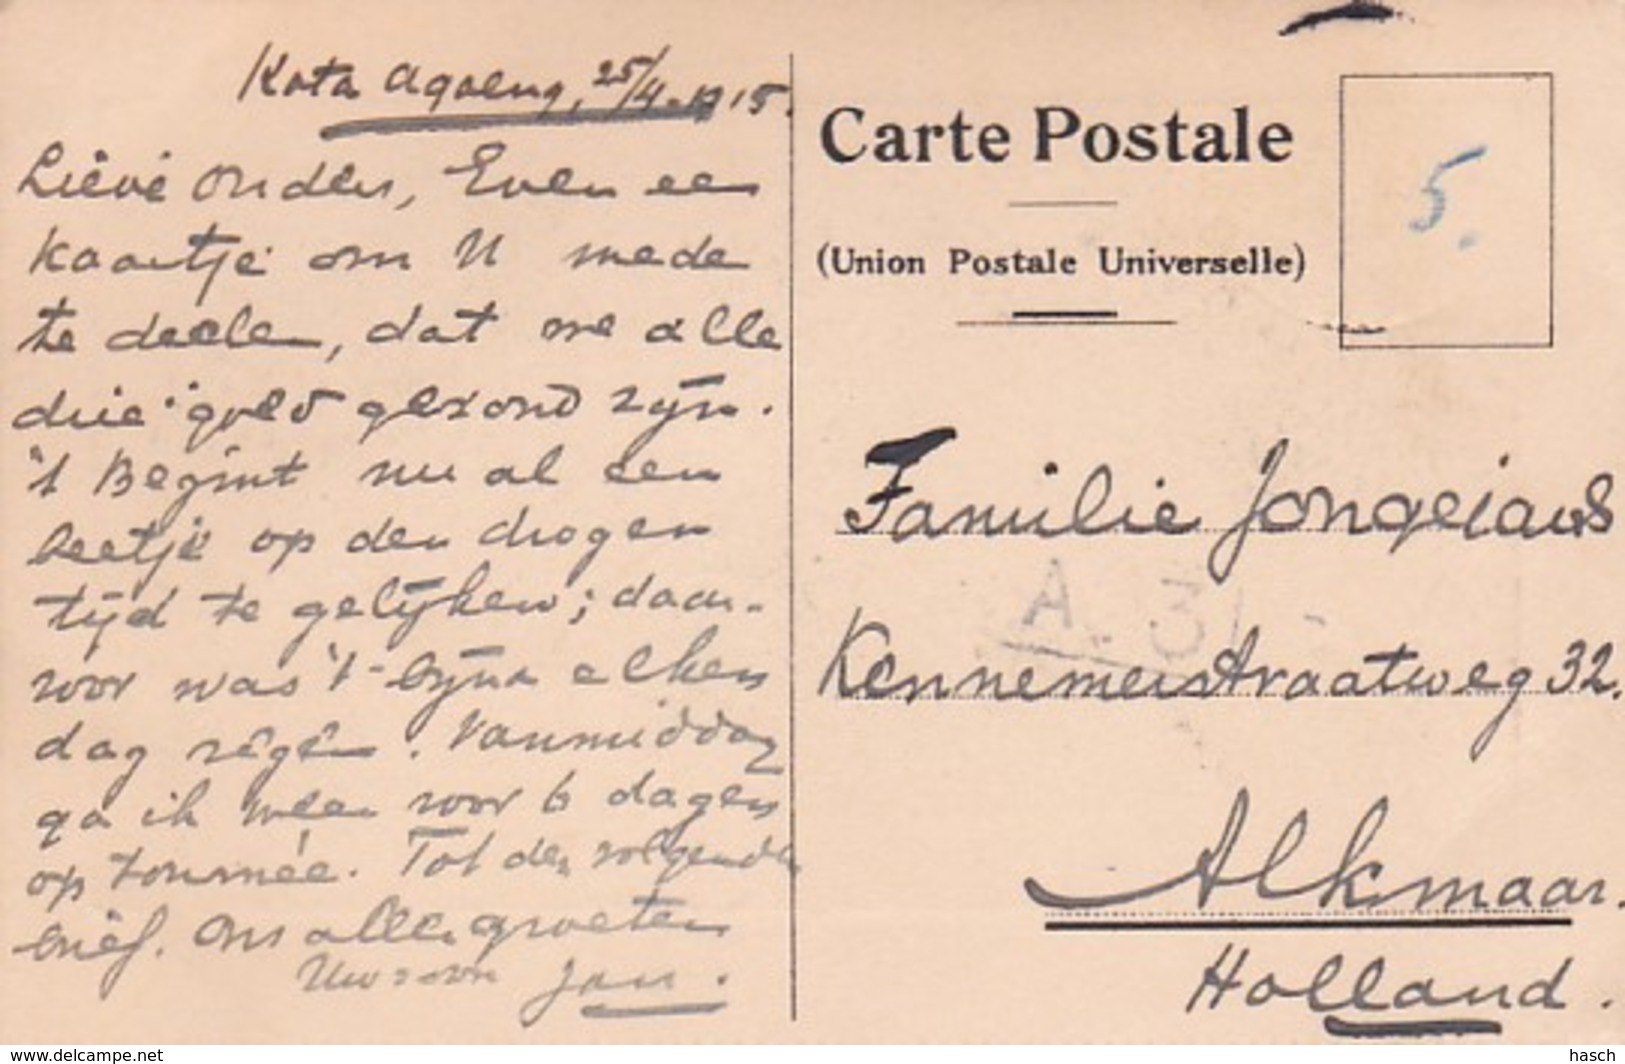 Kota Agoeng, 25/4-1915.
Lieve Ouders, Even een
kaartje om U mede
te deelen, dat we alle
drie goed gezond zijn.
't Begint nu al een
beetje op den drogen
tijd te gelijken; daar-
voor was 't bijna elken
dag regen. Vanmiddag
ga ik weer voor 6 dagen
op tournée. Tot den volgenden
brief. Ons aller groeten
Uw zoon Jan.
Carte Postale
(Union Postale Universelle)
5.
Familie Jongejans
A. 3
Kennemerstraatweg 32.
Alkmaar.
Holland.
www.delcampe.net
hasch